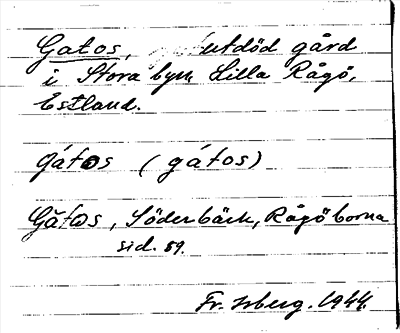 Gatos, utdöd gård
i Stora byn Lilla Rågö,
Estland.
gátos (gátos)
Gǎtos, Söderbäck, Rågöborna
sid. 59.
Fr. Isberg. 1944.